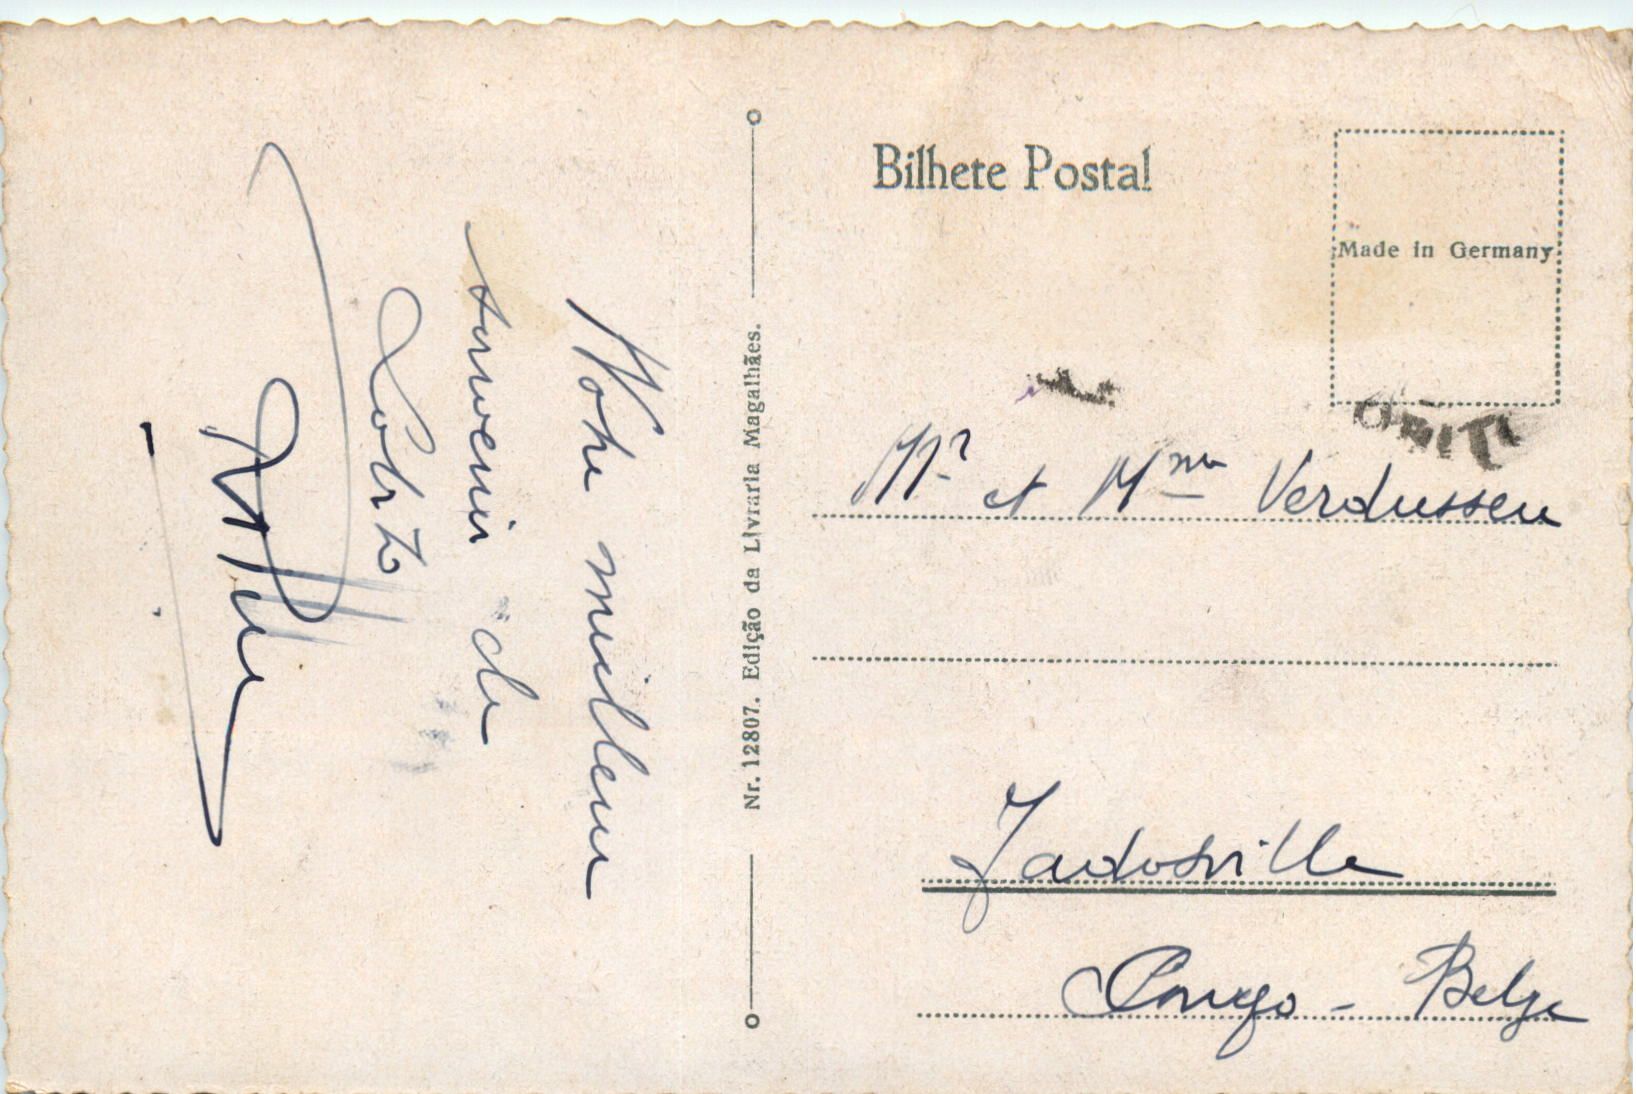 Notre meilleur
souvenir de
Lobito
Bilhete Postal
Made in Germany
Nr. 12807. Edição da Livraria Magalhães.
Mr et Mme Verdussen
Jadotville
Congo - Belge